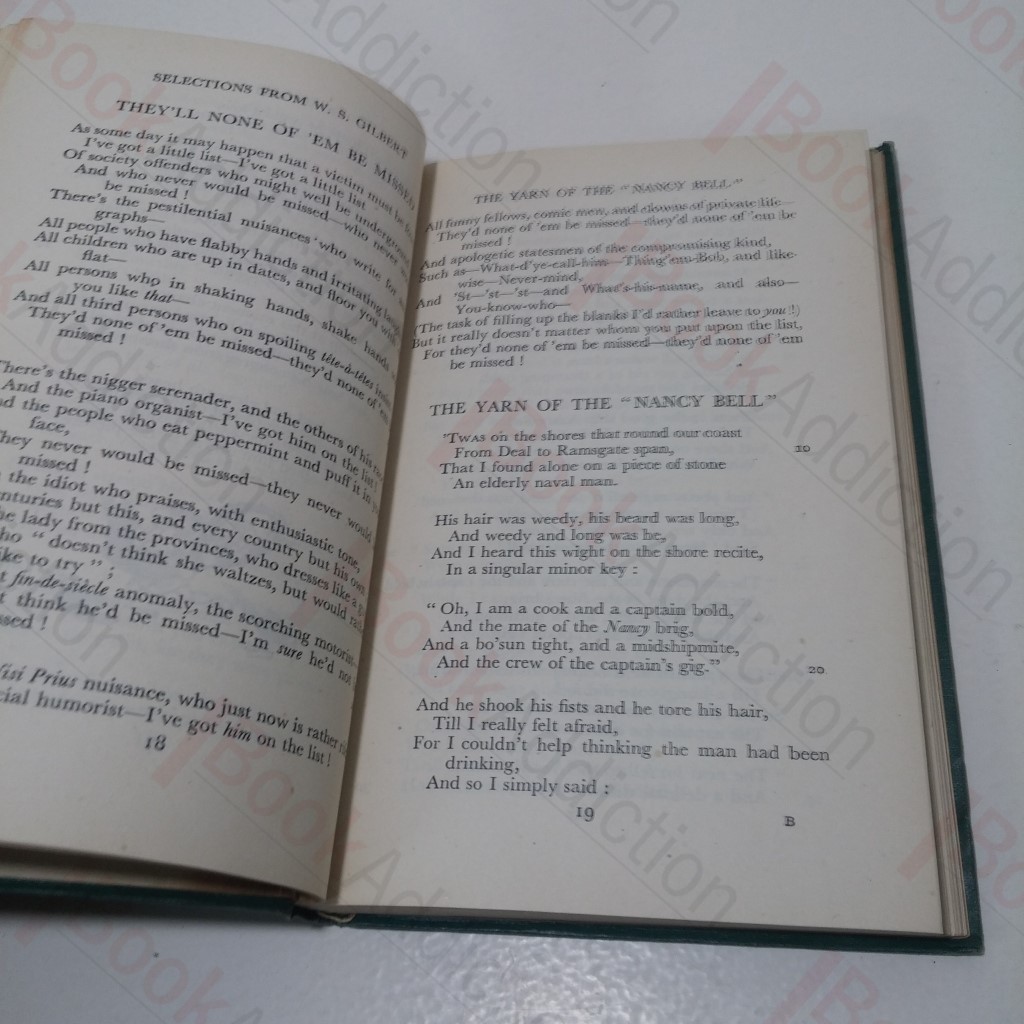 SELECTIONS FROM W. S. GILBERT
THEY'LL NONE OF 'EM BE MISSED
As some day it may happen that a victim must be
I've got a little list—I've got a little list
Of society offenders who might well be underground
And who never would be missed—who never
be missed !
There's the pestilential nuisances who write for
graphs—
All people who have flabby hands and irritating
All children who are up in dates, and floor you with
flat—
All persons who in shaking hands, shake hands
you like that—
And all third persons who on spoiling tête-à-têtes
They'd none of 'em be missed—they'd none of 'em
missed !
There's the nigger serenader, and the others of his
And the piano organist—I've got him on the list !
the people who eat peppermint and puff it in
face,
They never would be missed—they never would
missed !
the idiot who praises, with enthusiastic tone,
centuries but this, and every country but his own
lady from the provinces, who dresses like a
"doesn't think she waltzes, but would
like to try" ;
fin-de-siècle anomaly, the scorching motorist
think he'd be missed—I'm sure he'd not
missed !
Nisi Prius nuisance, who just now is rather
humorist—I've got him on the list !
18
THE YARN OF THE "NANCY BELL"
All funny fellows, comic men, and clowns of private life—
They'd none of 'em be missed—they'd none of 'em be
missed !
And apologetic statesmen of the compromising kind,
Such as—What-d'ye-call-him—Thing'em-Bob, and like-
wise—Never-mind,
And 'St—'st—'st—and What's-his-name, and also—
You-know-who—
(The task of filling up the blanks I'd rather leave to you !)
But it really doesn't matter whom you put upon the list,
For they'd none of 'em be missed—they'd none of 'em
be missed !
THE YARN OF THE "NANCY BELL"
'TWAS on the shores that round our coast
From Deal to Ramsgate span, 10
That I found alone on a piece of stone
An elderly naval man.
His hair was weedy, his beard was long,
And weedy and long was he,
And I heard this wight on the shore recite,
In a singular minor key :
"Oh, I am a cook and a captain bold,
And the mate of the Nancy brig,
And a bo'sun tight, and a midshipmite,
And the crew of the captain's gig." 20
And he shook his fists and he tore his hair,
Till I really felt afraid,
For I couldn't help thinking the man had been
drinking,
And so I simply said :
19 B
Book Addiction